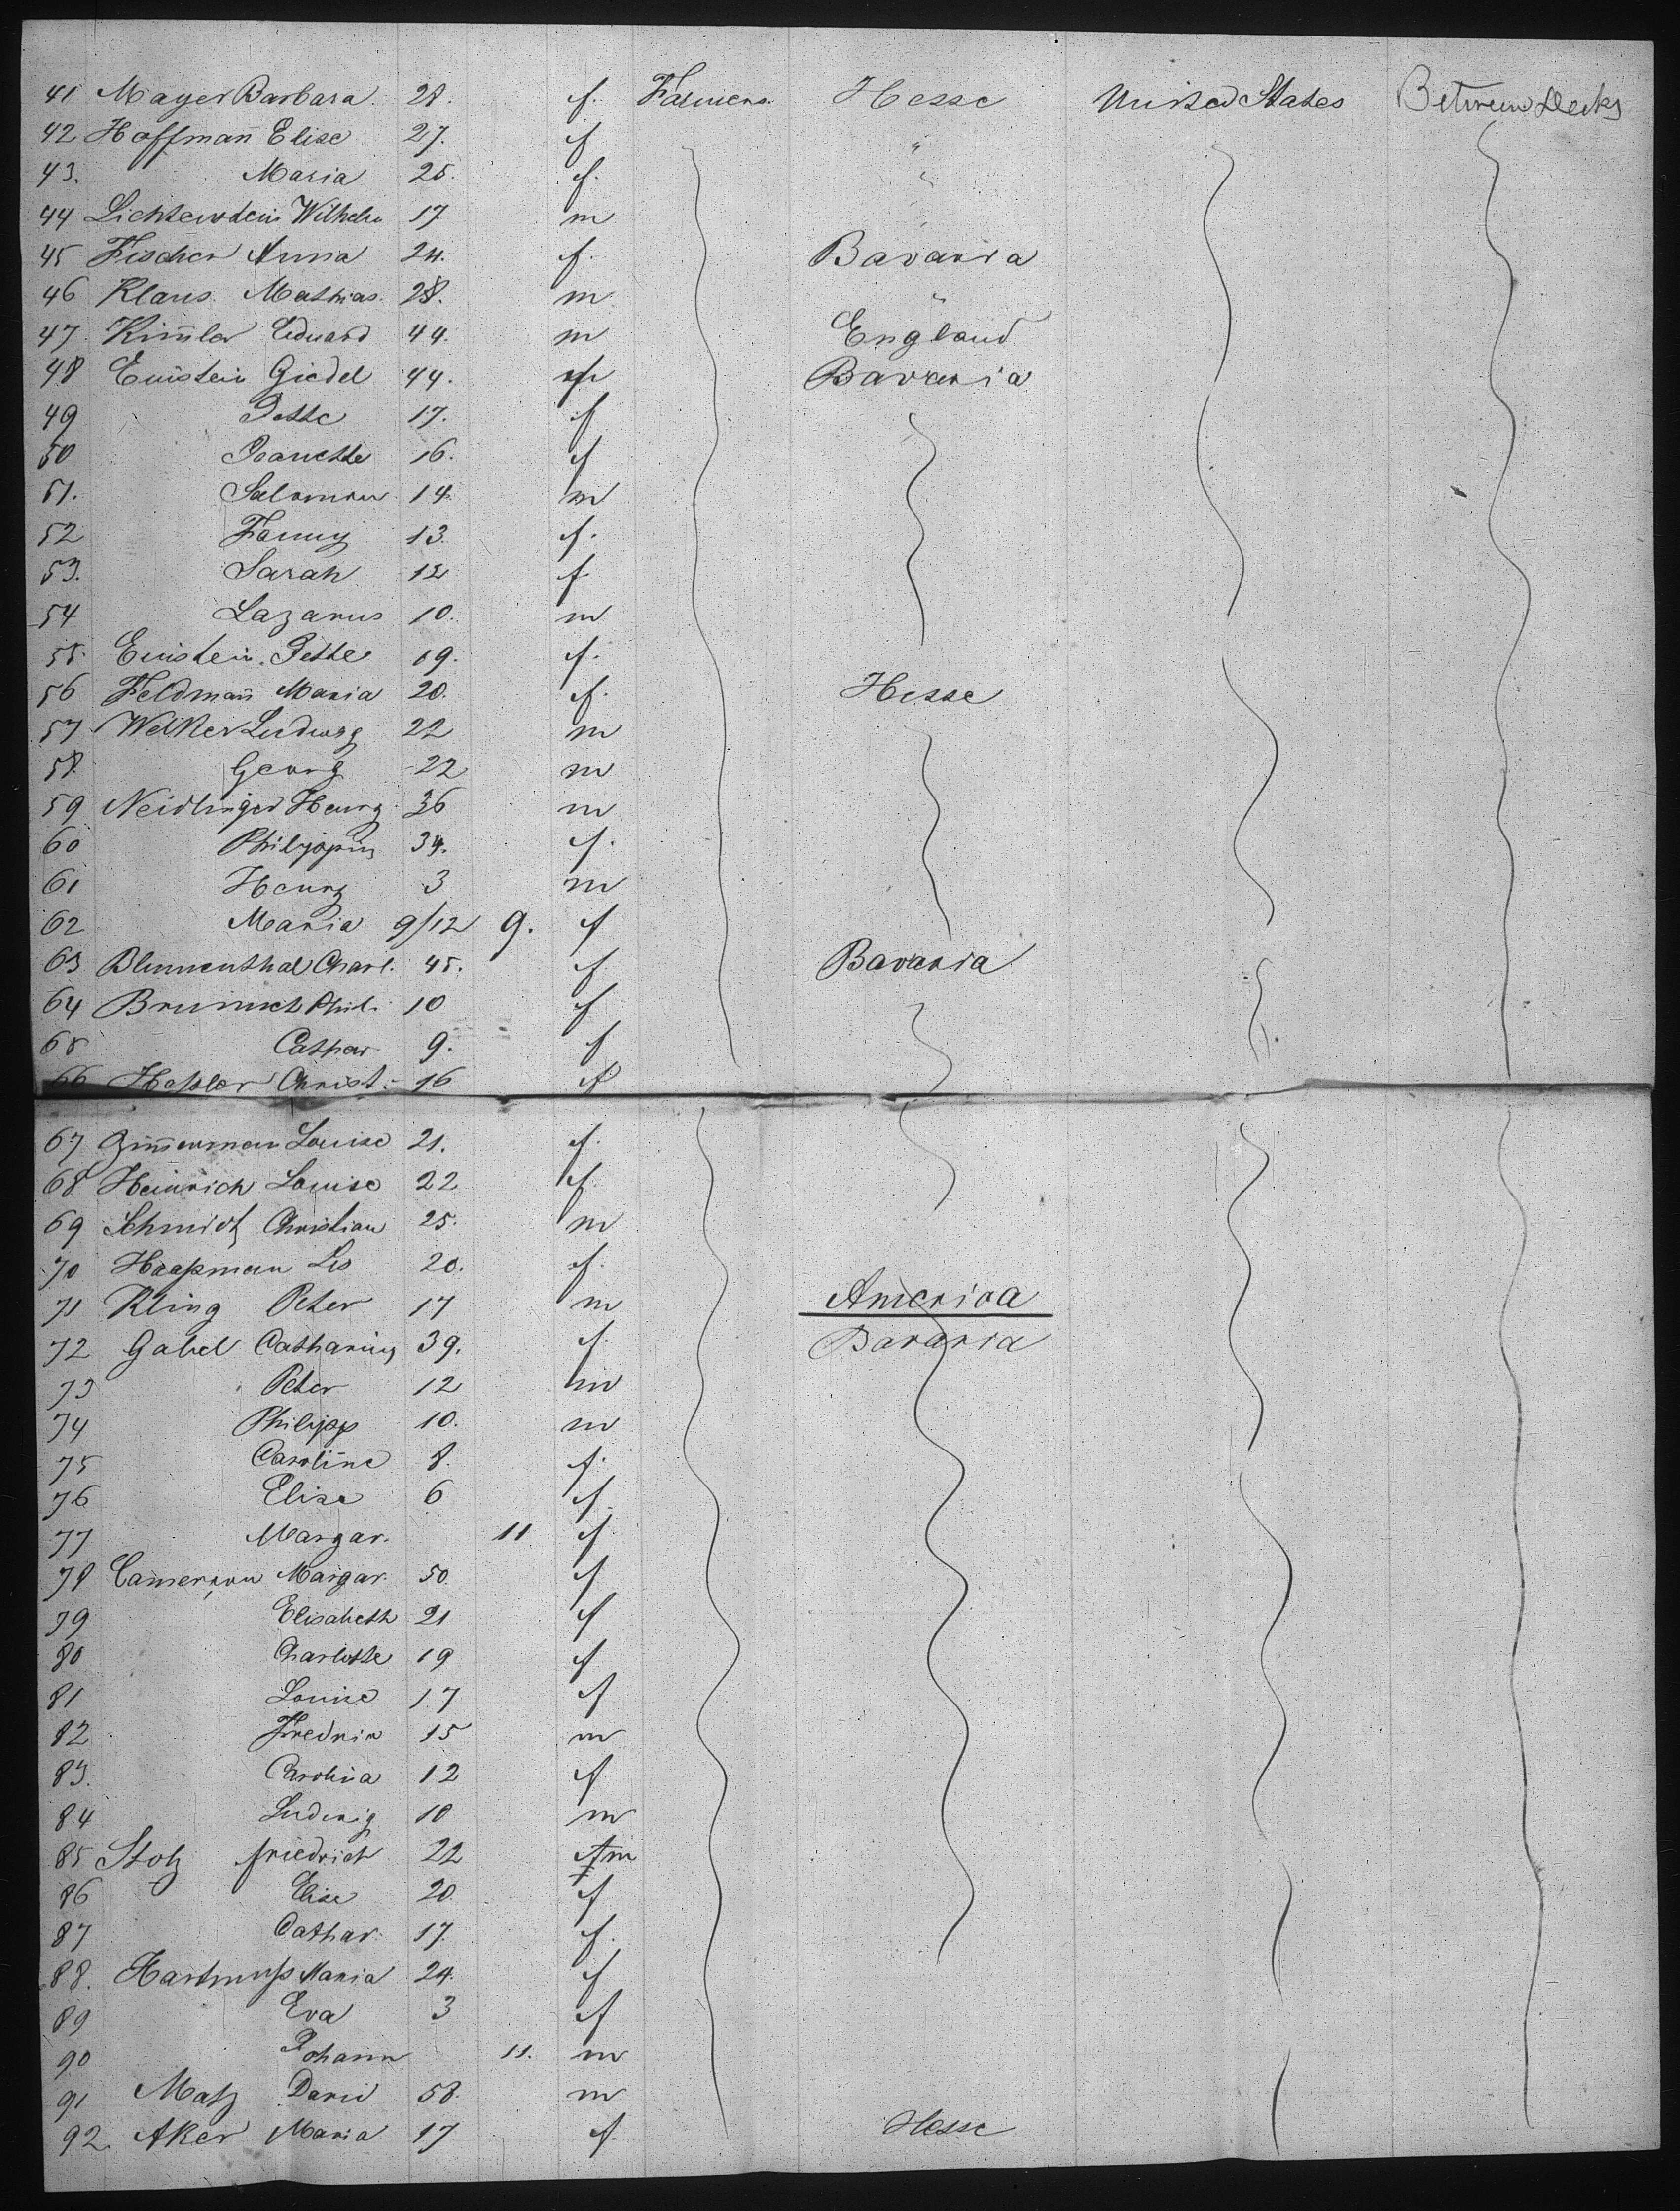 41 Mayer Barbara 28. f. Farmers. Hesse United States Between Decks
42 Hoffman̄ Elise 27. f "
43. Maria 25. f. "
44 Lichtenstein Wilhelm 17 m "
45 Fischer Anna 24. f. Bavaria
46 Klaus. Mathias. 28. m "
47. Kim̄ler Eduard 44. m England
48 Einstein Giedel 44. f Bavaria
49 Jette 17. f
50 Jeanette 16. f
51. Salomon 14. m
52 Fanny 13. f.
53. Sarah 12 f
54 Lazarus 10. m
55. Einstein. Jette 19. f.
56 Feldman̄ Maria 20. f. Hesse
57 Welker Ludwig 22 m
58. Georg 22 m
59 Neidlinger Henry 36 m
60 Philippin 34. f.
61 Henry 3 m
62 Maria 9/12 9. f
63 Blumenthal Charl. 45. f Bavaria
64 Phil. 10 f
65 Cathar. 9. f
66 Christ. 16 f
67 Zim̄erman Louise 21. f.
68 Heinrich Louise 22 f.
69 Schmidt Christian 25. m
70 Lis 20. f.
71 Kling Peter 17 m America
72 Gabel Catharina 39. f. Bavaria
73 Peter 12 m
74 Philipp 10. m
75 Caroline 8. f.
76 Elise 6 f.
77 Margar. 11 f
78 Margar. 50. f
79 Elisabeth 21 f
80 Charlotte 19 f
81 Louise 17 f
82 Fredrik 15 m
83. Carolina 12 f
84 Ludwig 10 m
85 Stolz friedrich 22 m
86 Elise 20. f
87 Cathar. 17. f.
88. Maria 24. f
89 Eva 3 f
90 Johann 11. m
91 Matz David 58. m
92. Aker Maria 17 f. Hesse